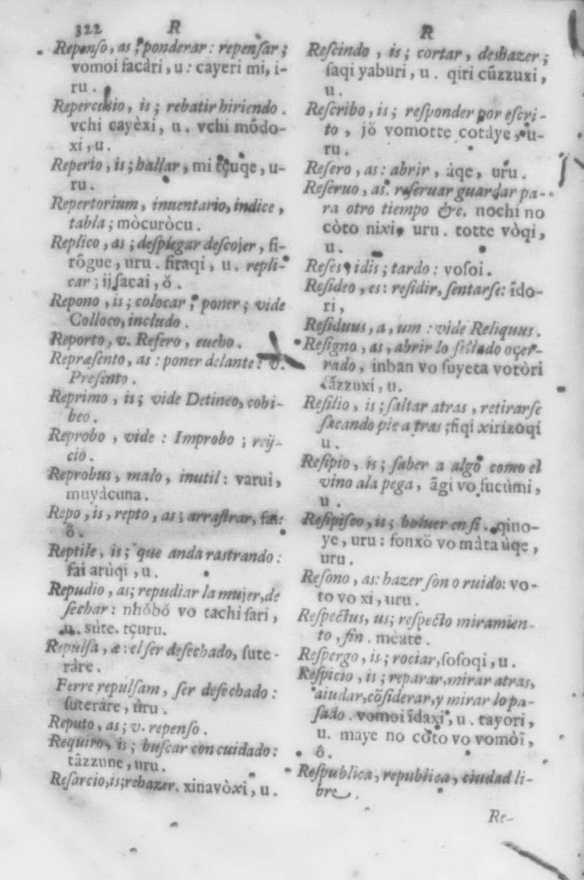 322 R
Repenso, as; ponderar: repensar;
vomoi facàri, u: cayeri mi, i-
ru.
Repercussio, is; rebatir hiriendo.
vchi cayèxi, u. vchi mŏdo-
xi, u.
Reperio, is; hallar, mi tçuqe, u-
ru.
Repertorium, inuentario, indice,
tabla; mòcuròcu.
Replico, as; desplegar descojer, fi-
rôgue, uru. firaqi, u. repli-
car; ijsacai, ŏ.
Repono, is; colocar, poner; vide
Colloco, includo.
Reporto, v. Resero, eueho.
Repræsento, as: poner delante: v.
Presento.
Reprimo, is; vide Detineo, cohi-
beo.
Reprobo, vide: Improbo; reij-
cio.
Reprobus, malo, inutil: varui,
muyácuna.
Repo, is, repto, as; arrastrar, fai:
ŏ.
Reptile, is; que anda rastrando:
fai arùqi, u.
Repudio, as; repudiar la mujer, de
sechar: nhŏbŏ vo tachi sari,
u. sùte. tçuru.
Repulsa, æ: el ser desechado, sute-
ràre.
Ferre repulsam, ser desechado:
suteràre, ùru.
Reputo, as; v. repenso.
Requiro, is; buscar con cuidado:
tâzzune, uru.
Resarcio, is; rehazer. xinavòxi, u.
R
Rescindo, is; cortar, deshazer;
saqi yaburi, u. qiri cũzzuxi,
u.
Rescribo, is; responder por escri-
to, jŏ vomotte cotàye, u-
ru.
Resero, as: abrir, àqe, uru.
Reseruo, as. reseruar guardar pa-
ra otro tiempo &c. nochi no
còto nixi, uru. totte vòqi,
u.
Reses, idis; tardo: vosoi.
Resideo, es: residir, sentarse: ĩdo-
ri,
Residuus, a, um: vide Reliquus.
Resigno, as, abrir lo sellado o cer-
rado, inban vo suyeta votòri
cãzzuxi, u.
Resilio, is; saltar atras, retirarse
sacando pie atras; fiqi xirizòqi
u.
Resipio, is; saber a algo como el
vino ala pega, ãgi vo fucùmi,
u.
Resipisco, is; boluer en si. qino-
ye, uru: fonxŏ vo màta ùqe,
uru.
Resono, as: hazer son o ruido: vo-
to vo xi, uru.
Respectus, us; respecto miramien-
to, fin. meàte.
Respergo, is; rociar, sosoqi, u.
Respicio, is; reparar, mirar atras,
aiudar, cõsiderar, y mirar lo pa-
sado. vomoi ĩdaxi, u. tayori,
u. maye no còto vo vomòi,
ŏ.
Respublica, republica, ciudad li-
bre.
Re-